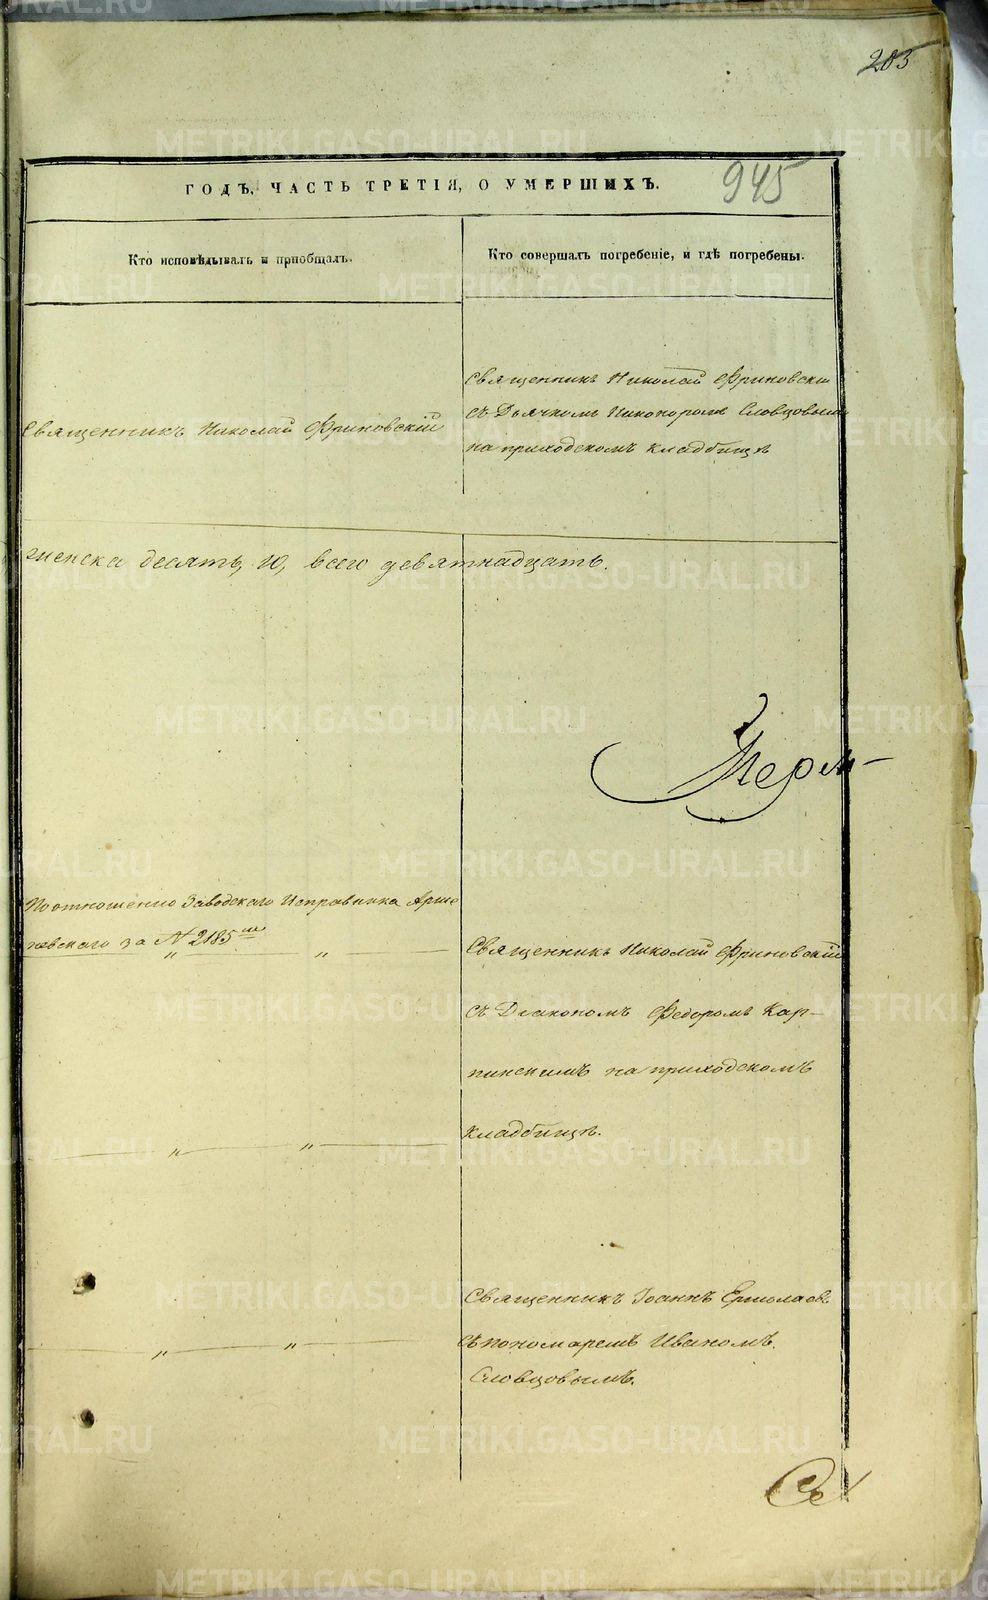 205
945
ГОДЪ, ЧАСТЬ ТРЕТІЯ, О УМЕРШИХЪ.
Кто исповѣдывалъ и пріобщалъ.
Кто совершалъ погребеніе, и гдѣ погребены.
Священникъ Николай Фриновскій
Священникъ Николай Фриновскій
съ Дьячкомъ Никопоромъ Словцовымъ
на приходскомъ кладбищѣ
женска десять, 10, всего девятнадцать.
Перм-
По отношенію Заводскаго Исправника
за №2185мъ " "
Священникъ Николай Фриновскій
съ Діакономъ Федоромъ Кар-
пинскимъ на приходскомъ
кладбищѣ.
" "
Священникъ Іоаннъ Ермолаевъ
съ пономаремъ Иваномъ
Словцовымъ.
" "
Се
METRIKI.GASO-URAL.RU